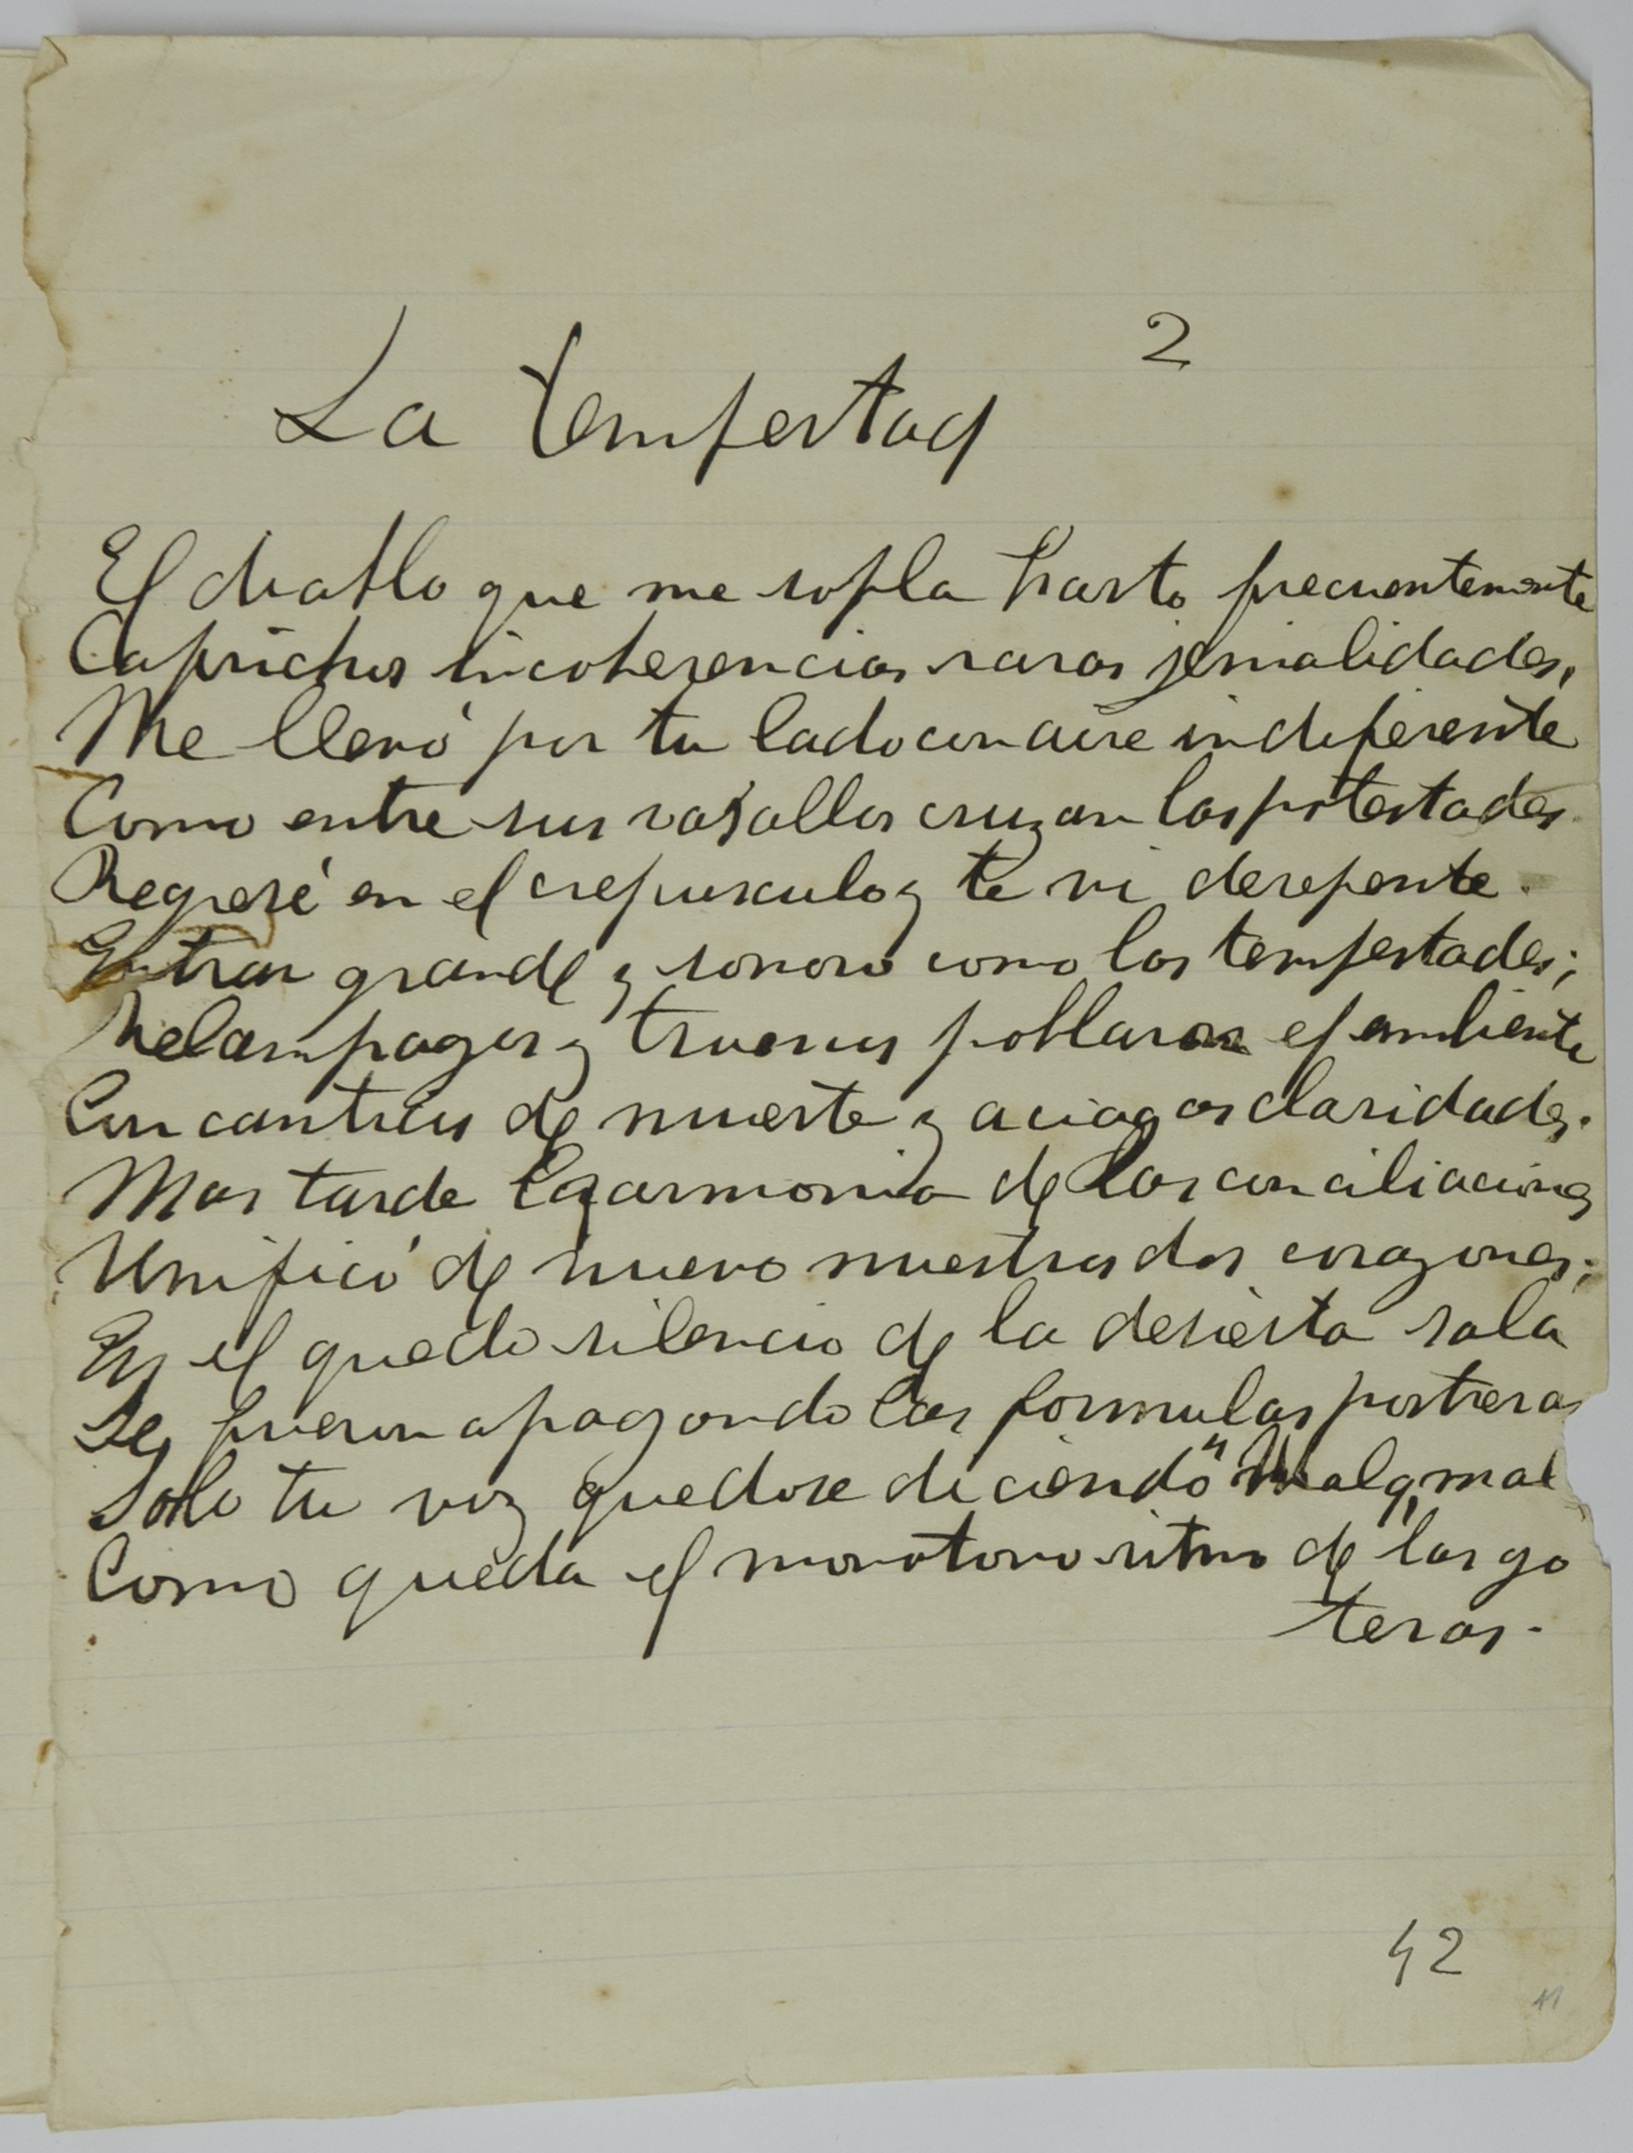 2
La tempestad
El diablo que me sopla harto frecuentemente
Caprichos incoherencias raras jenialidades,
Me llevó por tu lado con aire indiferente
Como entre sus vasallos cruzan las potestades.
Regresé en el crepusculo y te vi derepente.
Entrar grande y sonoro como las tempestades;
Relampagos y truenos poblaron el ambiente
Con canticos de muerte y aciagas claridades.
Mas tarde la armonia de las conciliaciones
Unificó de nuevo nuestros dos corazones;
En el quedo silencio de la desierta sala
Se fueron apagando las formulas postreras
Solo tu voz quedose diciendo "Mala, mal
Como queda el monotono ritmo de las go
teras.
42
41